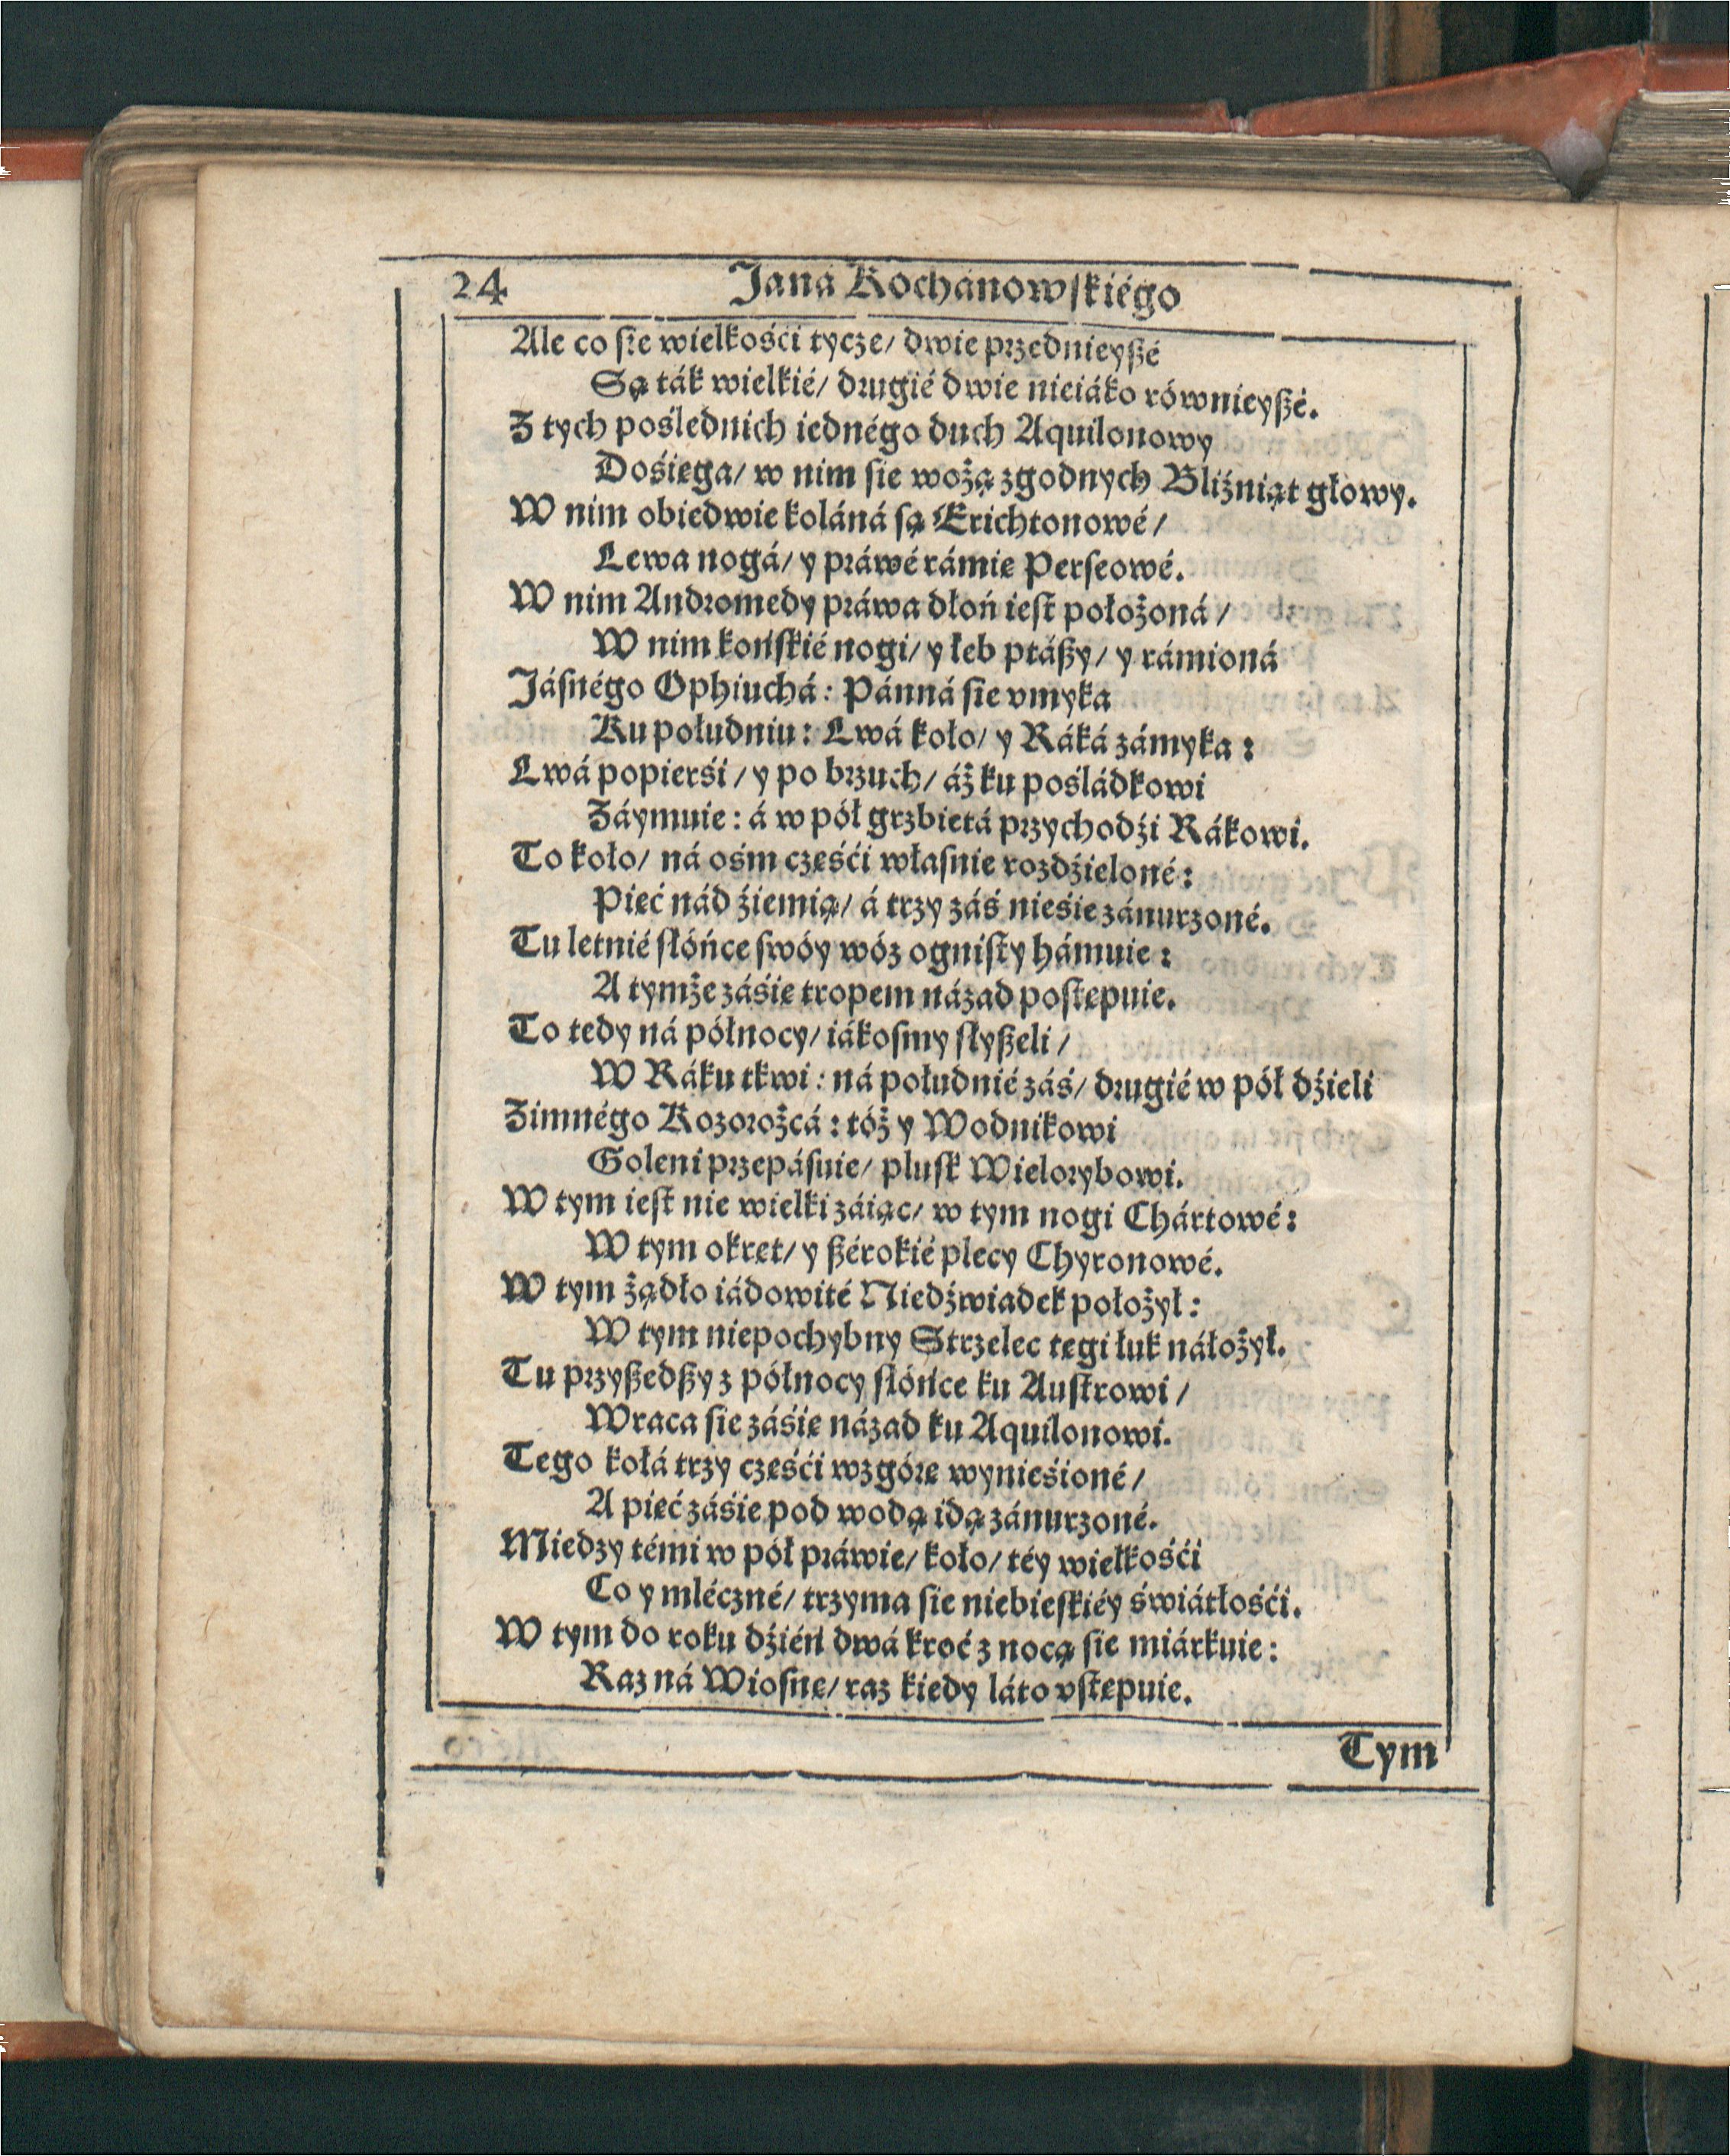 24 Janá Kochánowſkiégo
Ale co ſie wielkośći tycze/ dwie przednieyßé
Są ták wielkié/ drugié dwie nieiáko równieyßé.
Z tych poślednich iednégo duch Aquilonowy
Dośięga/ w nim ſie wożą zgodnych Bliźniąt głowy.
W nim obiedwie koláná ſą Erichtonowé/
Lewa nogá/ y práwé rámię Perſeowé.
W nim Andromedy práwa dłoń ieſt położoná/
W nim końſkié nogi/ y łeb ptáßy/ y rámioná
Jáſnégo Ophiuchá: Pánná ſie vmyka
Ku południu: Lwá koło/ y Ráká zámyka:
Lwá popierśi/ y po brzuch/ áż ku pośládkowi
Záymuie: á w pół grzbietá przychodźi Rákowi.
To koło/ ná ośm częśći właſnie rozdźieloné:
Pięć nád źiemią/ á trzy záś nieśie zánurzoné.
Tu letnié ſłóńce ſwóy wóz ogniſty hámuie:
A tymże záśię tropem názad poſtępuie.
To tedy ná północy/ iákoſmy ſłyßeli/
W Ráku tkwi: ná południé záś/ drugié w pół dźieli
Zimnégo Kozorożcá: tóż y Wodnikowi
Goleni przepáſuie/ pluſk Wielorybowi.
W tym ieſt nie wielki záiąc/ w tym nogi Chártowé:
W tym okręt/ y ßérokié plecy Chyronowé.
W tym żądło iádowité Niedźwiadek położył:
W tym niepochybny Strzelec tęgi łuk náłożył.
Tu przyßedßy z północy ſłóńce ku Auſtrowi/
Wraca ſie záśię názad ku Aquilonowi.
Tego kołá trzy częśći wzgórę wynieśioné/
A pięć záśię pod wodą idą zánurzoné.
Miedzy témi w pół práwie/ koło/ téy wielkośći
Co y mléczné/ trzyma ſie niebieſkiéy świátłośći.
W tym do roku dźień dwá kroć z nocą ſie miárkuie:
Raz ná Wioſnę/ raz kiedy láto vſtępuie.
Tym